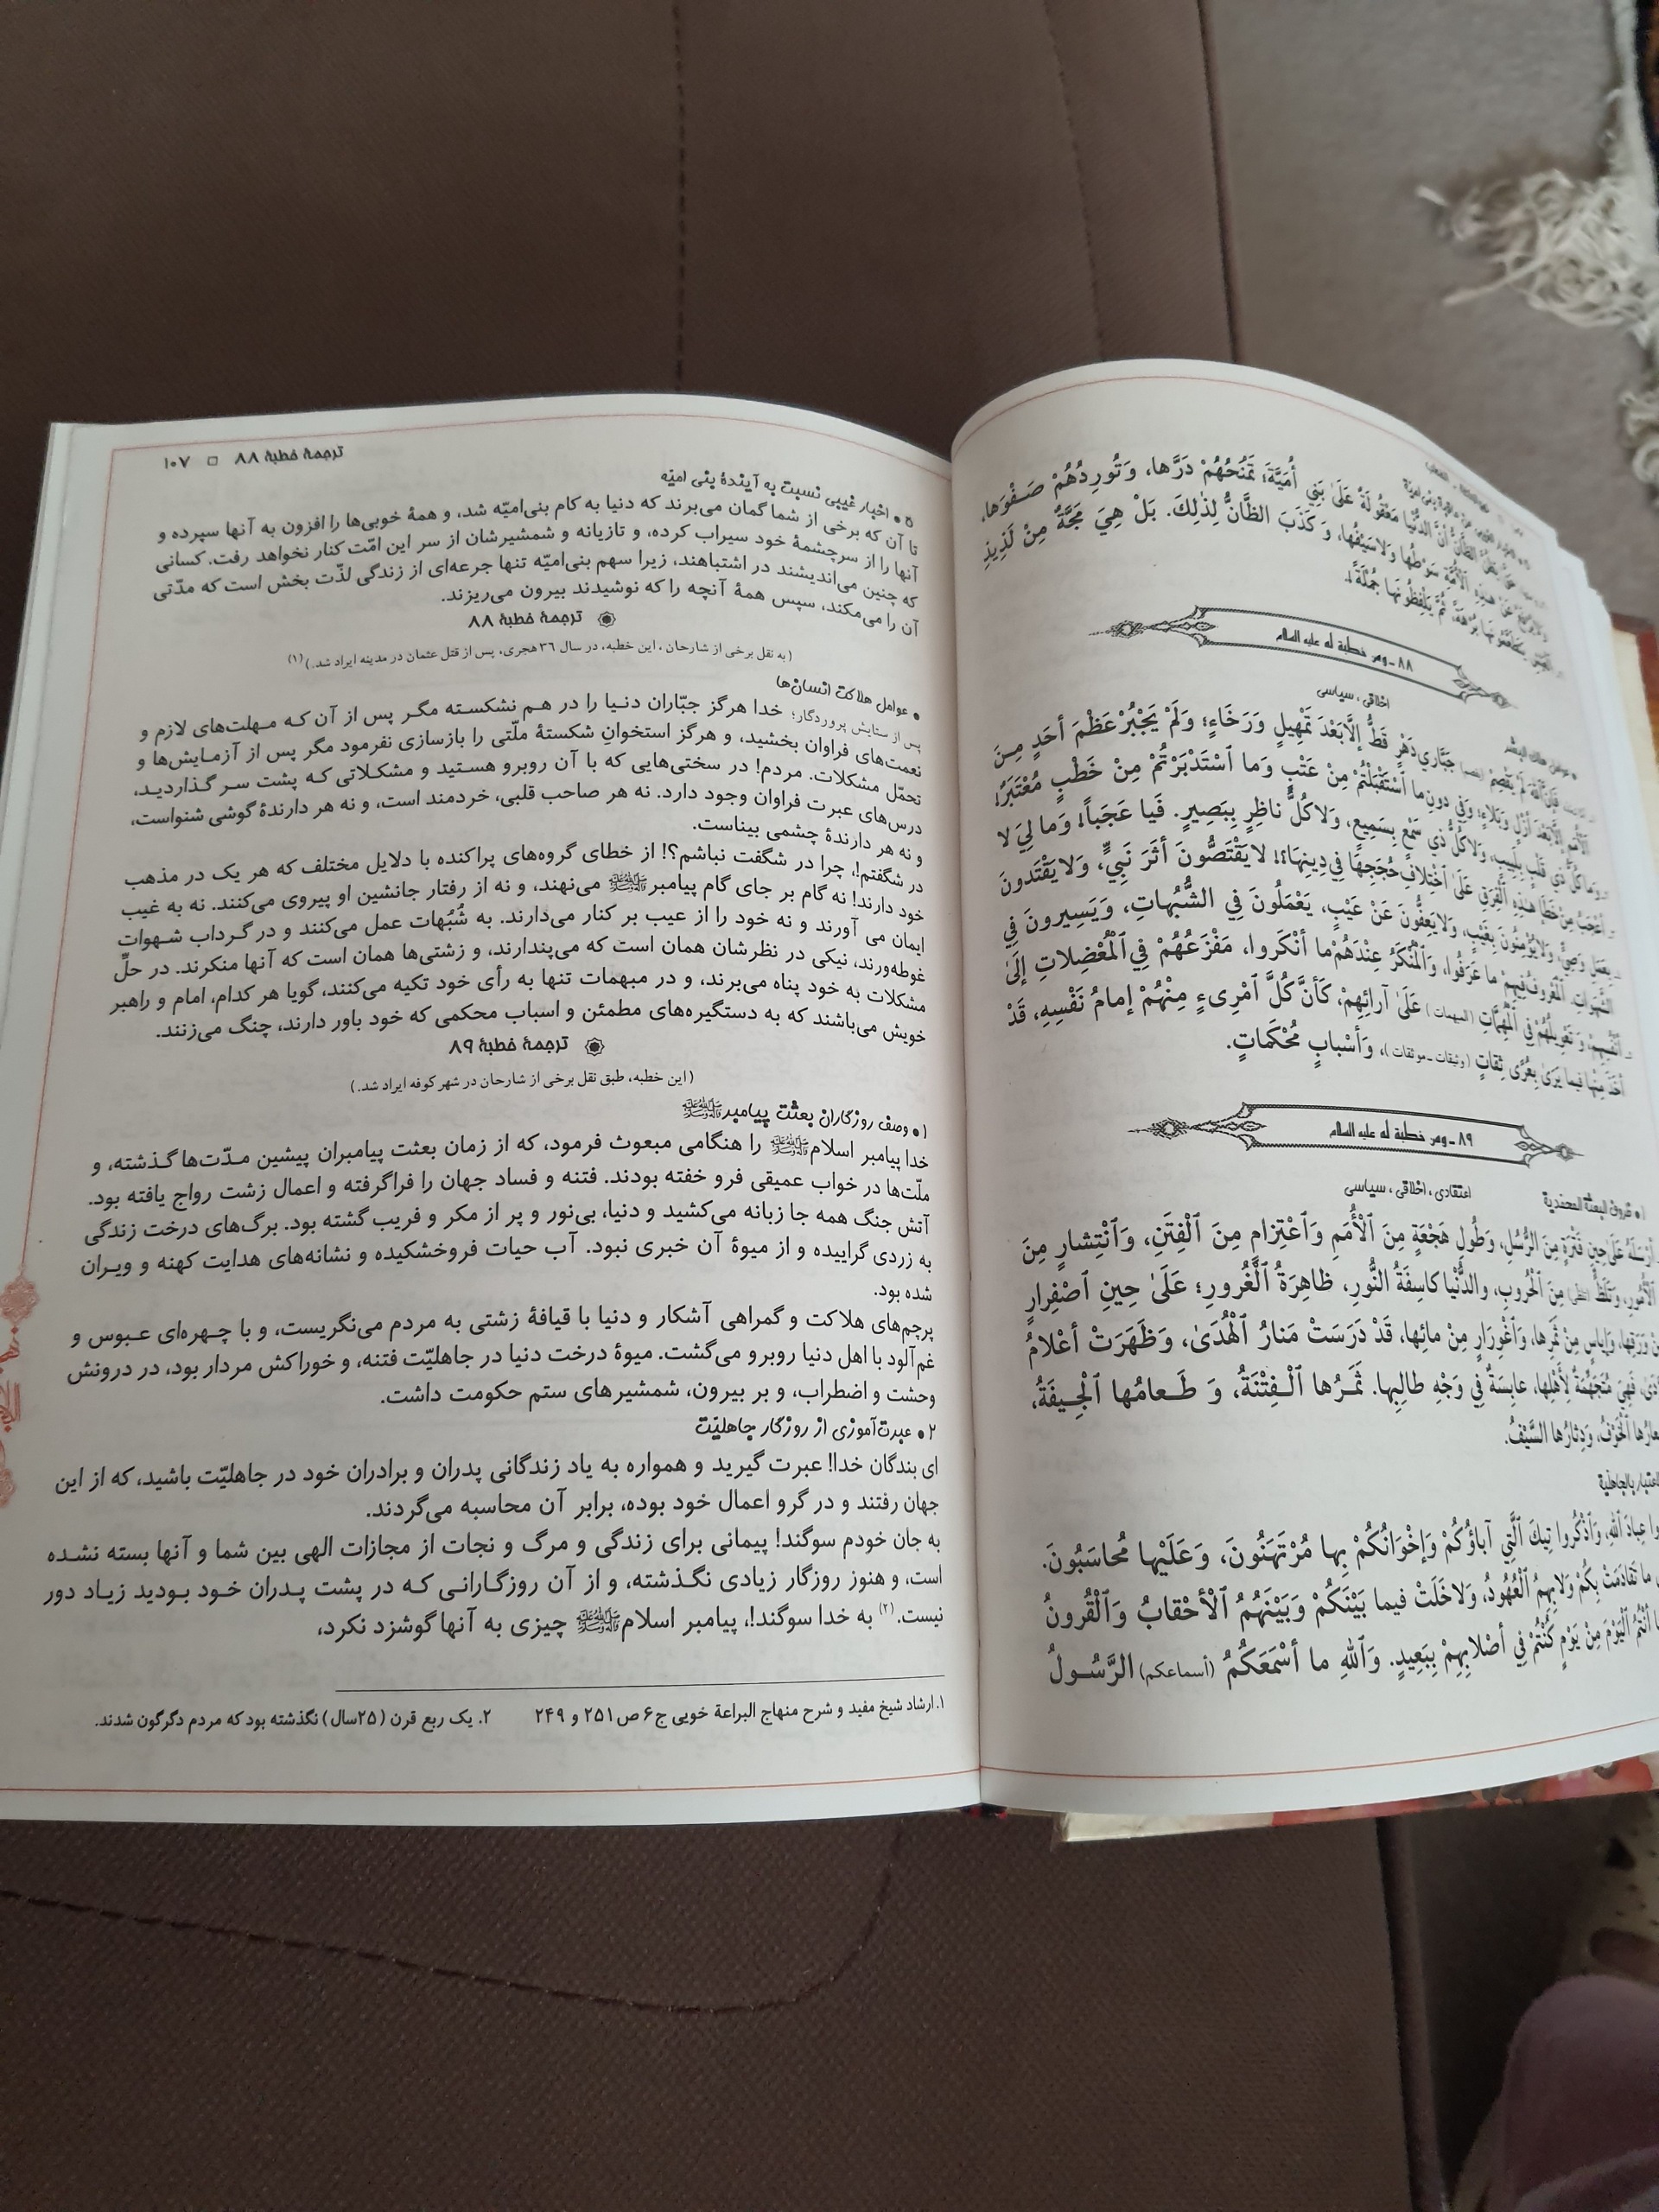 أُمَيَّةَ؛ تَمْنَحُهُمْ دَرَّها، وَتُورِدُهُمْ صَفْوَها،
وَلاسَيْفُها، وَكَذَبَ الظَّانُّ لِذٰلِكَ. بَلْ هِيَ مَجَّةٌ مِنْ لَذِيذِ
ثُمَّ يَلْفِظُونَها جُمْلَةً!.
۸۸ ـ ومن خطبة له علیه السلام
اخلاقی، سیاسی
جَبَّارِي دَهْرٍ قَطُّ إلَّا بَعْدَ تَمْهِيلٍ وَرَخَاءٍ؛ وَلَمْ يَجْبُرْ عَظْمَ أحَدٍ مِـنَ
الْأُمَمِ إلَّا بَعْدَ أزْلٍ وَبَلاءٍ؛ وَفِي دونِ ما اسْتَقْبَلْتُمْ مِنْ عَتْبٍ وَما اسْتَدْبَرْتُمْ مِنْ خَطْبٍ مُعْتَبَرٌ!
قَلْبٍ بِلَبِيبٍ، وَلاكُلُّ ذي سَمْعٍ بِسَمِيعٍ، وَلاكُلُّ ناظِرٍ بِبَصِيرٍ. فَيا عَجَباً! وَما لِيَ لا
أعْجَبُ مِنْ خَطَإِ هٰذِهِ الْفِرَقِ عَلَىٰ اخْتِلافِ حُجَجِهَا فِي دِينِهَا؟! لا يَقْتَصُّونَ أثَرَ نَبِيٍّ، وَلا يَقْتَدونَ
بِعَمَلِ وَصِيٍّ، وَلايُؤْمِنُونَ بِغَيْبٍ، وَلايَعِفُّونَ عَنْ عَيْبٍ، يَعْمَلُونَ فِي الشُّبُهاتِ، وَيَسِيرونَ فِي
الشَّهَواتِ. الْمَعْرُوفُ فِيهِمْ ما عَرَفُوا، وَالْمُنْكَرُ عِنْدَهُمْ ما أنْكَروا، مَفْزَعُهُمْ فِي الْمُعْضِلاتِ إلَىٰ
أنْفُسِهِمْ، وَتَعْوِيلُهُمْ فِي الْمُهِمَّاتِ (المبهمات) عَلَىٰ آرائِهِمْ، كَأنَّ كُلَّ امْرِىءٍ مِنْهُمْ إمامُ نَفْسِهِ، قَدْ
أخَذَ مِنْها فيما يَرَى بِعُرًى ثِقاتٍ (وثیقات ـ موثقات)، وَأسْبابٍ مُحْكَماتٍ.
۸۹ ـ ومن خطبة له علیه السلام
اعتقادی، اخلاقی، سیاسی
أرْسَلَهُ عَلَىٰ حِينِ فَتْرَةٍ مِنَ الرُّسُلِ، وَطُولِ هَجْعَةٍ مِنَ الْأُمَمِ وَاعْتِزامٍ مِنَ الْفِتَنِ، وَانْتِشارٍ مِنَ
الْأُمُورِ، وَتَلَظٍّ مِنَ الْحُروبِ، والدُّنْيا كاسِفَةُ النُّورِ، ظاهِرَةُ الْغُرورِ؛ عَلَىٰ حِينِ اصْفِرارٍ
وَرَقِها، وَإياسٍ مِنْ ثَمَرِها، وَاغْوِرَارٍ مِنْ مائِها، قَدْ دَرَسَتْ مَنارُ الْهُدَىٰ، وَظَهَرَتْ أعْلامُ
فَهِيَ مُتَجَهِّمَةٌ لِأهْلِها، عابِسَةٌ فِي وَجْهِ طالِبِها. ثَمَـرُها الْـفِتْنَةُ، وَ طَـعامُها الْجِـيفَةُ،
الْخَوْفُ، وَدِثارُها السَّيْفُ.
عِبادَ اللهِ، وَاذْكُروا تِيكَ الَّتِي آباؤُكُمْ وَإخْوَانُكُمْ بِها مُرْتَهَنُونَ، وَعَلَيْها مُحاسَبُونَ.
ما تَقادَمَتْ بِكُمْ وَلابِهِمُ الْعُهُودُ، وَلاخَلَتْ فيما بَيْنَكُمْ وَبَيْنَهُمُ الْأحْقابُ وَالْقُرونُ
أنْتُمُ الْيَوْمَ مِنْ يَوْمٍ كُنْتُمْ فِي أصْلابِهِمْ بِبَعِيدٍ. وَاللهِ ما أسْمَعَكُمُ (أسماعكم) الرَّسُـولُ
ترجمهٔ خطبهٔ ۸۸ □ ۱۰۷
۵ • اخبار غیبی نسبت به آیندهٔ بنی امیّه
تا آن که برخی از شما گمان می‌برند که دنیا به کام بنی‌امیّه شد، و همهٔ خوبی‌ها را افزون به آنها سپرده و
آنها را از سرچشمهٔ خود سیراب کرده، و تازیانه و شمشیرشان از سر این امّت کنار نخواهد رفت. کسانی
که چنین می‌اندیشند در اشتباهند، زیرا سهم بنی‌امیّه تنها جرعه‌ای از زندگی لذّت بخش است که مدّتی
آن را می‌مکند، سپس همهٔ آنچه را که نوشیدند بیرون می‌ریزند.
ترجمهٔ خطبهٔ ۸۸
(به نقل برخی از شارحان، این خطبه، در سال ۳۶ هجری، پس از قتل عثمان در مدینه ایراد شد.)(۱)
• عوامل هلاکت انسان‌ها
پس از ستایش پروردگار؛ خدا هرگز جبّاران دنـیا را در هـم نشکسـته مگـر پس از آن کـه مـهلت‌های لازم و
نعمت‌های فراوان بخشید، و هرگز استخوانِ شکستهٔ ملّتی را بازسازی نفرمود مگر پس از آزمـایش‌ها و
تحمّل مشکلات. مردم! در سختی‌هایی که با آن روبرو هسـتید و مشکـلاتی کـه پشت سـر گـذاردیـد،
درس‌های عبرت فراوان وجود دارد. نه هر صاحب قلبی، خردمند است، و نه هر دارندهٔ گوشی شنواست،
و نه هر دارندهٔ چشمی بیناست.
در شگفتم!، چرا در شگفت نباشم؟! از خطای گروه‌های پراکنده با دلایل مختلف که هر یک در مذهب
خود دارند! نه گام بر جای گام پیامبرﷺ می‌نهند، و نه از رفتار جانشین او پیروی می‌کنند. نه به غیب
ایمان می آورند و نه خود را از عیب بر کنار می‌دارند. به شُبُهات عمل می‌کنند و در گـرداب شـهوات
غوطه‌ورند، نیکی در نظرشان همان است که می‌پندارند، و زشتی‌ها همان است که آنها منکرند. در حلِّ
مشکلات به خود پناه می‌برند، و در مبهمات تنها به رأی خود تکیه می‌کنند، گویا هر کدام، امام و راهبر
خویش می‌باشند که به دستگیره‌های مطمئن و اسباب محکمی که خود باور دارند، چنگ می‌زنند.
ترجمهٔ خطبهٔ ۸۹
(این خطبه، طبق نقل برخی از شارحان در شهر کوفه ایراد شد.)
۱ • وصف روزگاران بعثت پیامبرﷺ
خدا پیامبر اسلامﷺ را هنگامی مبعوث فرمود، که از زمان بعثت پیامبران پیشین مـدّت‌ها گـذشته، و
ملّت‌ها در خواب عمیقی فرو خفته بودند. فتنه و فساد جهان را فراگرفته و اعمال زشت رواج یافته بود.
آتش جنگ همه جا زبانه می‌کشید و دنیا، بی‌نور و پر از مکر و فریب گشته بود. برگ‌های درخت زندگی
به زردی گراییده و از میوهٔ آن خبری نبود. آب حیات فروخشکیده و نشانه‌های هدایت کهنه و ویـران
شده بود.
پرچم‌های هلاکت و گمراهی آشکار و دنیا با قیافهٔ زشتی به مردم می‌نگریست، و با چـهره‌ای عـبوس و
غم‌آلود با اهل دنیا روبرو می‌گشت. میوهٔ درخت دنیا در جاهلیّت فتنه، و خوراکش مردار بود، در درونش
وحشت و اضطراب، و بر بیرون، شمشیرهای ستم حکومت داشت.
۲ • عبرت‌آموزی از روزگار جاهلیّت
ای بندگان خدا! عبرت گیرید و همواره به یاد زندگانی پدران و برادران خود در جاهلیّت باشید، که از این
جهان رفتند و در گرو اعمال خود بوده، برابر آن محاسبه می‌گردند.
به جان خودم سوگند! پیمانی برای زندگی و مرگ و نجات از مجازات الهی بین شما و آنها بسته نشـده
است، و هنوز روزگار زیادی نگـذشته، و از آن روزگـارانـی کـه در پشت پـدران خـود بـودید زیـاد دور
نیست.(۲) به خدا سوگند!، پیامبر اسلامﷺ چیزی به آنها گوشزد نکرد،
۱. ارشاد شیخ مفید و شرح منهاج البراعة خویی ج۶ ص۲۵۱ و ۲۴۹ ۲. یک ربع قرن (۲۵سال) نگذشته بود که مردم دگرگون شدند.